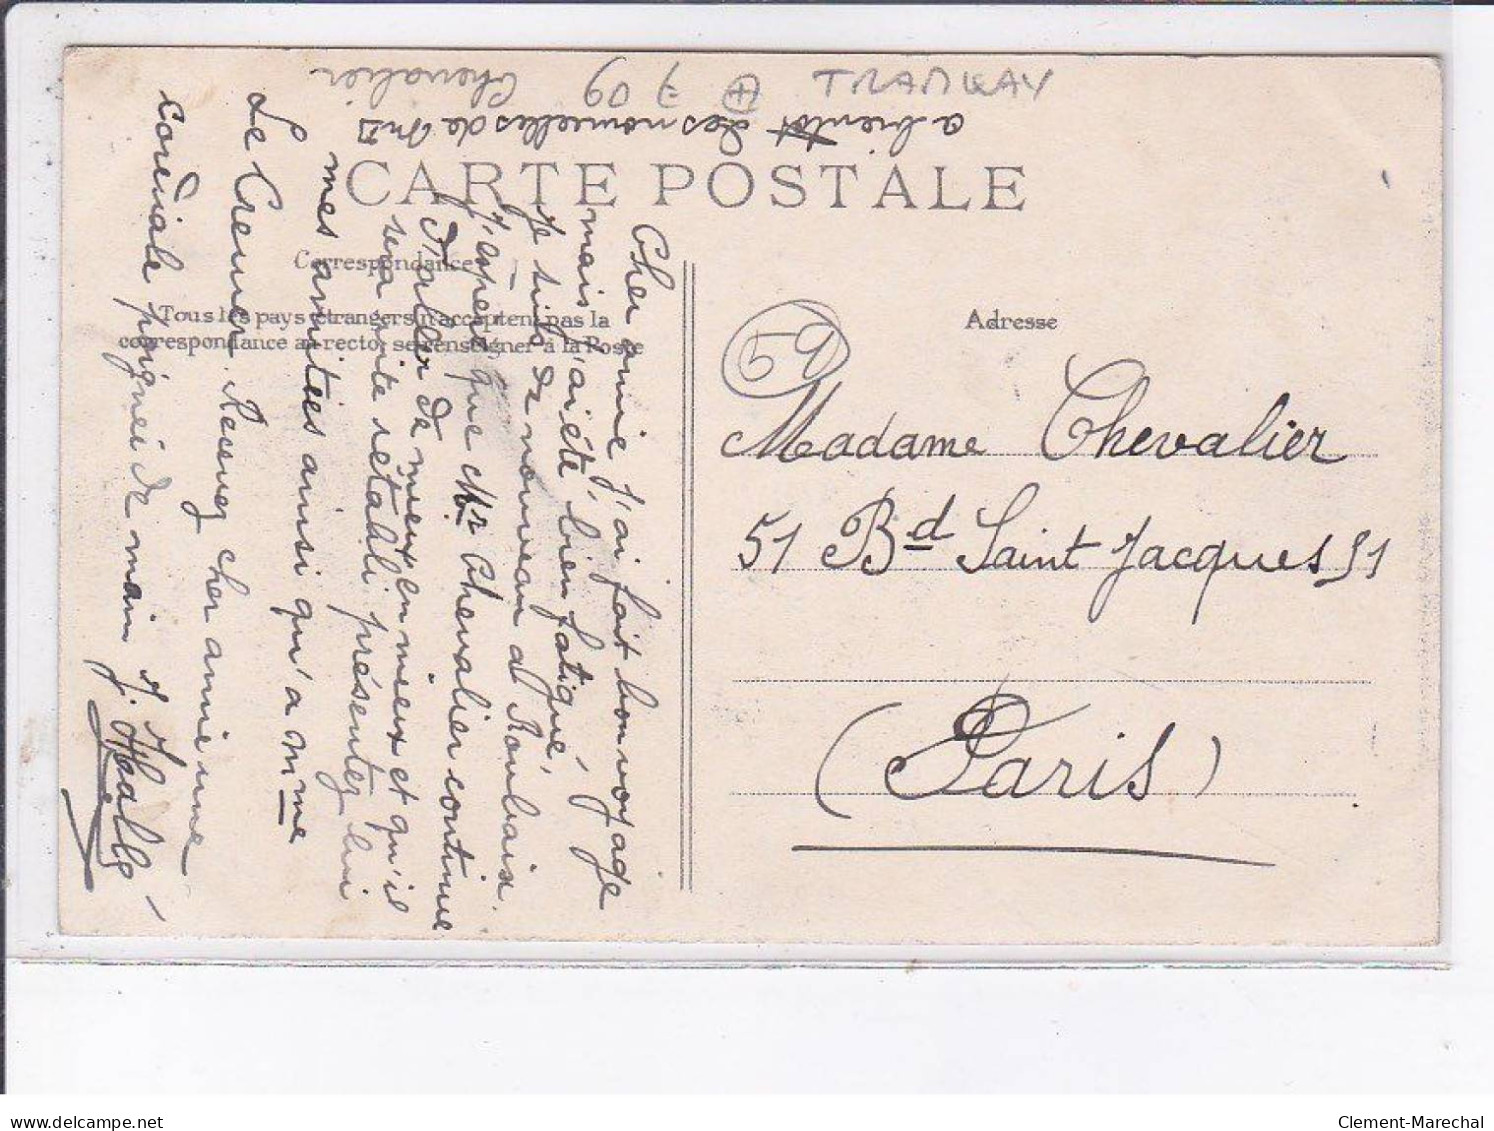 TRAMWAY
a bientot des nouvelles de Mr
Chevalier
CARTE POSTALE
Correspondance
Tous les pays étrangers n'acceptent pas la
correspondance au recto, se renseigner à la Poste
Adresse
59
Madame Chevalier
51 Bd Saint Jacques 51
(Paris)
Cher amie j'ai fait bon voyage
mais j'ai été bien fatigué,
Je suis de nouveau a Roubaix.
J'espere que Mr Chevalier continue
d'aller de mieux en mieux et qu'il
sera vite rétabli présentez lui
mes amitées ainsi qu'a Mme
Le Cremer. Recevez cher amie une
cordiale poignei de main
delcampe.net
Clement-Marechal